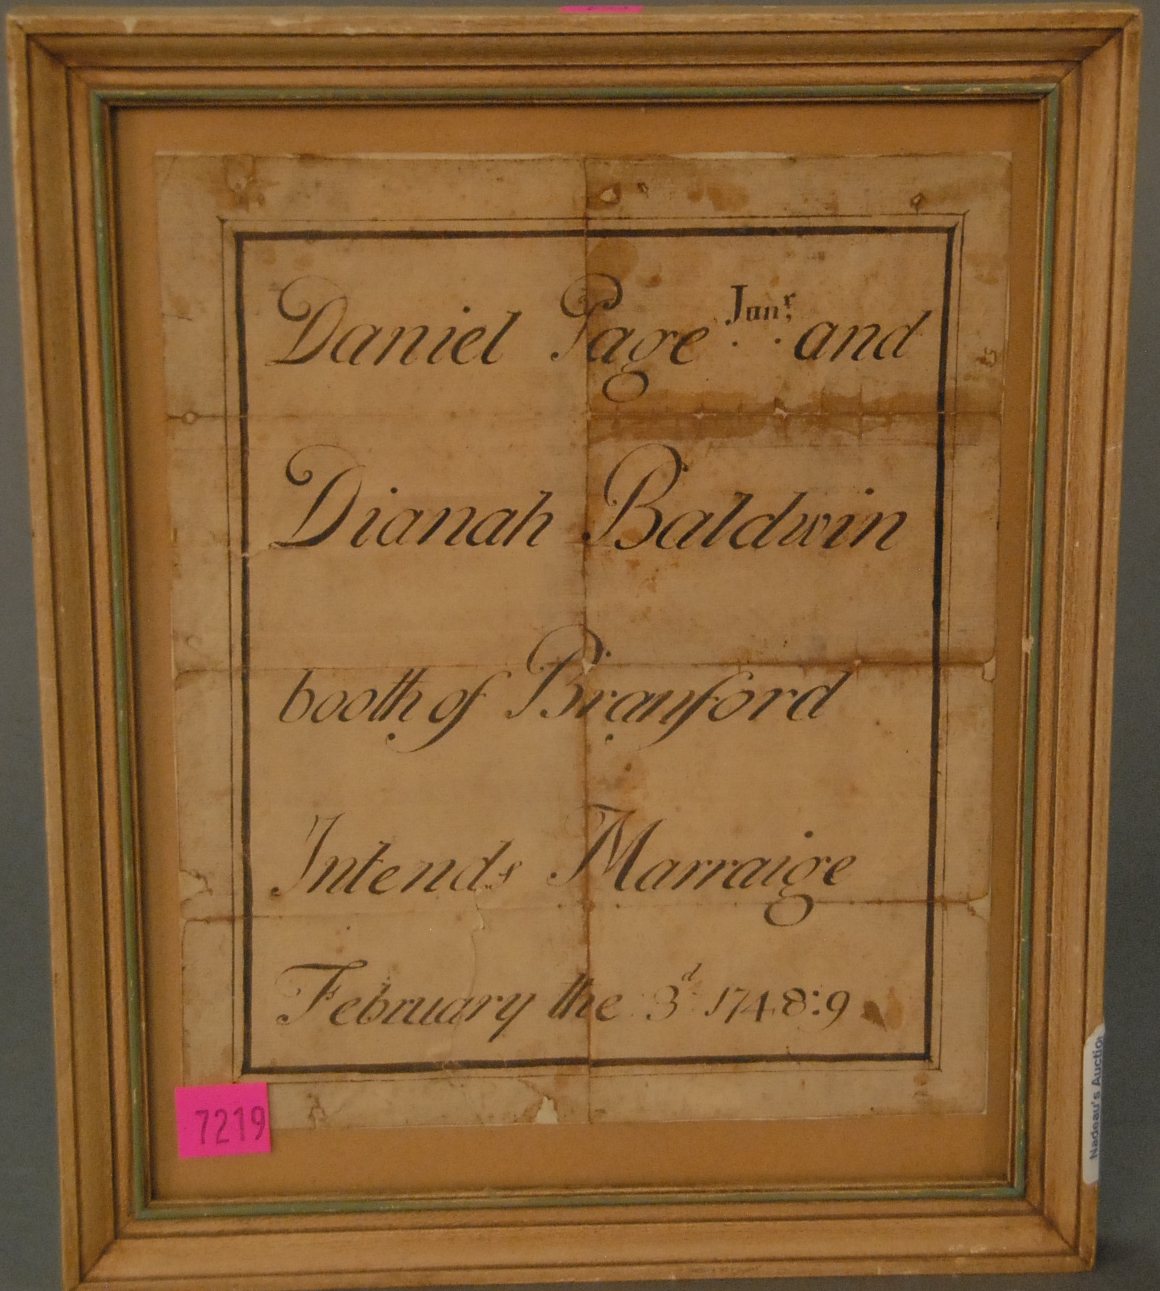 Daniel Page Junr and
Dianah Baldwin
booth of Branford
Intends Marraige
February the 3d 1748:9
7219
Nadeau's Auction